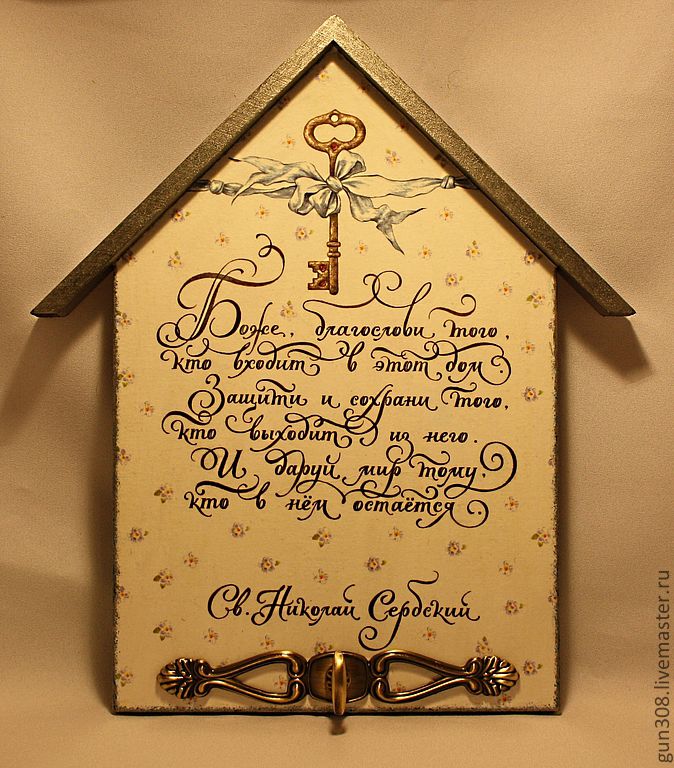 Боже, благослови того,
кто входит в этот дом.
Защити и сохрани того,
кто выходит из него.
И даруй мир тому,
кто в нём остаётся.
Св. Николай Сербский
gun308.livemaster.ru